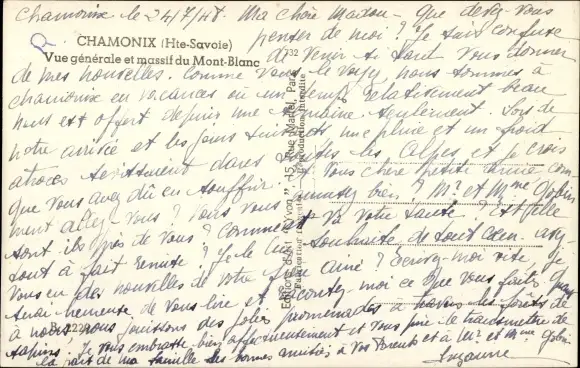 Chamonix le 24/7/48. Ma chère Madou - Que devez vous
penser de moi ? Je suis confuse
CHAMONIX (Hte-Savoie)
732
Vue générale et massif du Mont-Blanc
de venir si tard vous donner
de mes nouvelles. Comme vous le voyez nous sommes à
Chamonix en vacances où un temps relativement beau
nous est offert depuis une semaine seulement. Lors de
notre arrivée et les jours suivants une pluie et un froid
atroces sévissaient dans toutes les Alpes et je crois
que vous avez dû en souffrir. Vous chère petite amie com-
ment allez-vous ? Vous vous amusez bien ? Mr et Mme Gobin
sont ils près de vous ? Comment va votre santé ? Est elle
tout à fait remise ? Je le souhaite de tout cœur. Avez
vous eu des nouvelles de votre aimé ? Ecrivez-moi vite, je
serai heureuse de vous lire et racontez moi ce que vous faites, quant
à nous nous jouissons des jolies promenades à travers les forêts de
sapins. Je vous embrasse bien affectueusement et vous prie de transmettre de
la part de ma famille les bonnes amitiés à vos Parents et à Mr et Mme Gobin.
Suzanne
Editions d'Art "Yvon", 15, Rue Martel, Paris
Fabrication
Reproduction interdite